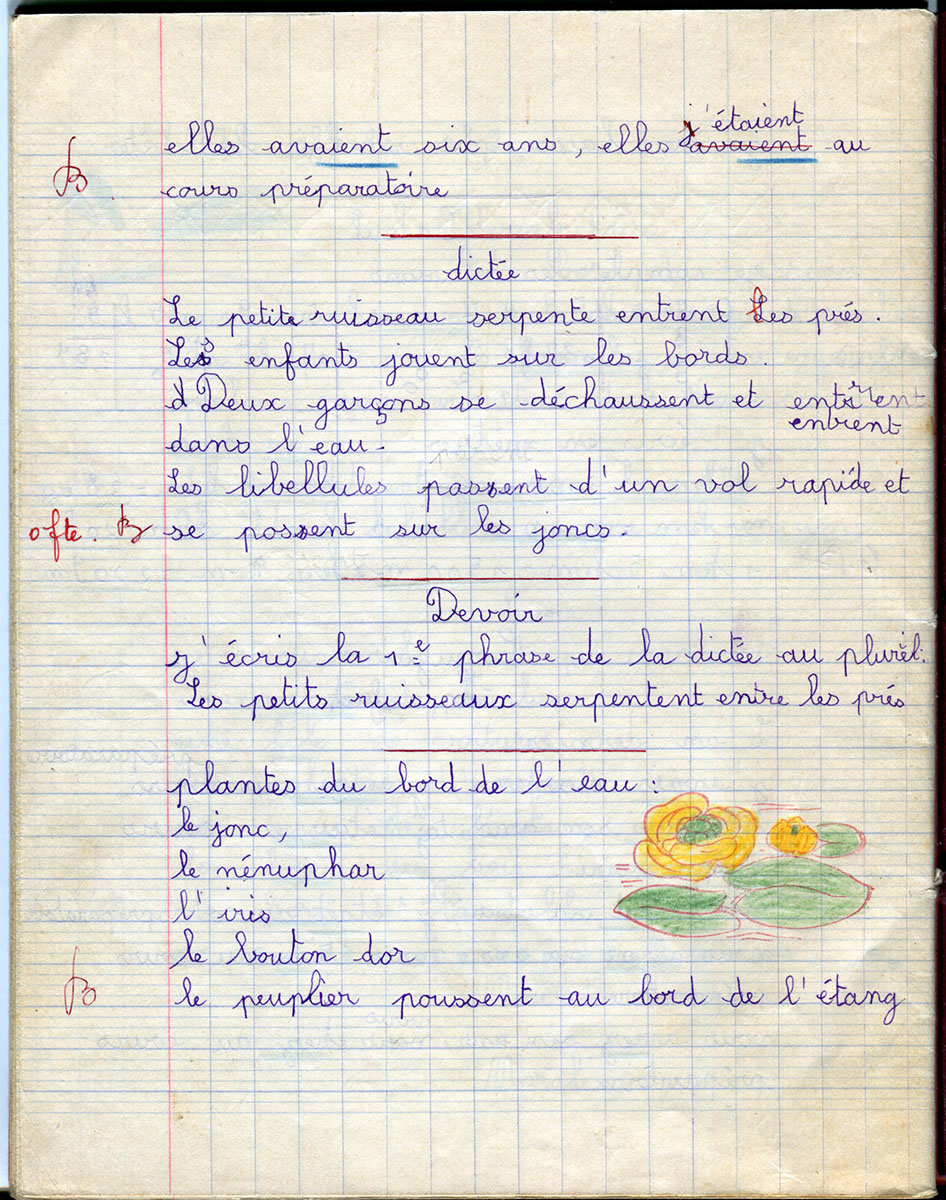 j'étaient
elles avaient six ans, elles avaient au
B cours préparatoire
dictée
Le petite ruisseau serpente entrent Les prés.
Les enfants jouent sur les bords.
d Deux garçons se déchaussent et entrent
entrent
dans l'eau.
Les libellules passent d'un vol rapide et
ofte. B se possent sur les joncs.
Devoir
j'écris la 1e phrase de la dictée au plurèl:
Les petits ruisseaux serpentent entre les prés
plantes du bord de l'eau :
le jonc,
le nénuphar
l'iris
le bouton dor
B le peuplier poussent au bord de l'étang